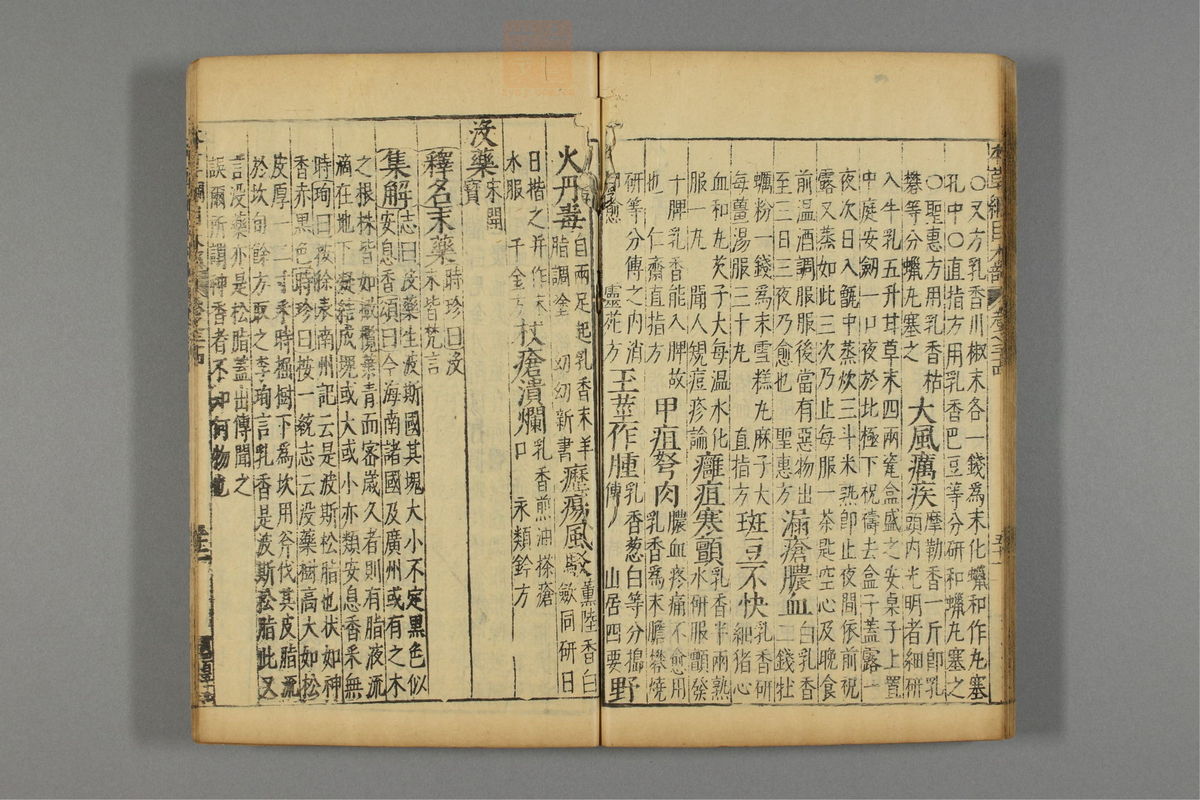 本草綱目木部
〇又方乳香川椒末各一錢爲末化蠟和作丸塞
孔中〇直指方用乳香巴豆等分研和蠟丸塞之
〇聖惠方用乳香枯礬等分蠟丸塞之
大風癘疾摩勒香一斤卽乳頭內光明者細研
入牛乳五升甘草末四兩瓷盒盛之安桌子上置
中庭安劒一口夜於北極下祝禱去盒子蓋露一
夜次日入甑中蒸炊三斗米熟卽止夜間依前祝
露又蒸如此三次乃止每服一茶匙空心及晚食
前溫酒調服服後當有惡物出至三日三夜乃愈也 聖惠方
漏瘡膿血白乳香二錢牡蠣粉一錢爲末雪糕丸麻子大每薑湯服三十丸 直指方
斑豆不快乳香研細猪心血和丸芡子大每溫水化服一丸 聞人規痘疹論
癰疽寒顫乳香半兩熟水研服顫發于脾乳香能入脾故也 仁齋直指方
甲疽弩肉膿血疼痛不愈用乳香爲末膽礬燒研等分傅之內消卽愈 靈苑方
玉莖作腫乳香葱白等分搗傅 山居四要
野火丹毒自兩足起乳香末羊脂調塗 幼幼新書
癧瘍風駁薰陸香白斂同研日日揩之幷作末水服 千金方
杖瘡潰爛乳香煎油搽瘡口 永類鈐方
没藥宋開寶
釋名末藥時珍曰没末皆梵言
集解志曰没藥生波斯國其塊大小不定黑色似
安息香頌曰今海南諸國及廣州或有之木
之根株皆如橄欖葉青而密歲久者則有脂液流
滴在地下凝結成塊或大或小亦類安息香采無
時珣曰按徐表南州記云是波斯松脂也狀如神
香赤黑色時珍曰按一統志云没藥樹高大如松
皮厚一二寸采時掘樹下爲坎用斧伐其皮脂流
於坎旬餘方取之李珣言乳香是波斯松脂此又
言没藥亦是松脂蓋出傳聞之
誤爾所謂神香者不知何物也